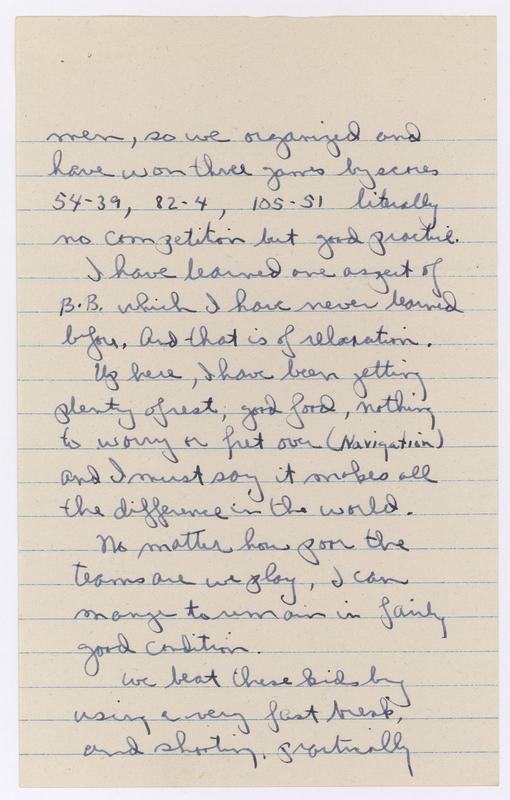 men, so we organized and
have won three games by scores
54-39, 82-4, 105-51 literally
no competition but good practice.
I have learned one aspect of
B.B. which I have never learned
before. And that is of relaxation.
Up here, I have been getting
plenty of rest, good food, nothing
to worry or fret over (Navigation)
and I must say it makes all
the difference in the world.
No matter how poor the
teams are we play, I can
mange to remain in fairly
good condition.
We beat these kids by
using a very fast break,
and shooting, practically